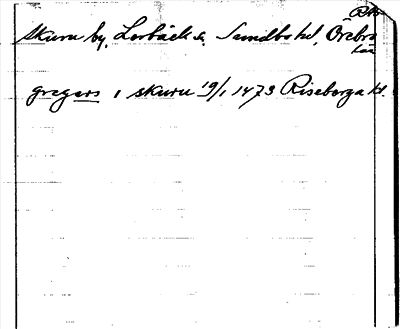 Skuru by, Lerbäck s. Sundbo hd, Örebro
län
gregers i skuru 19/1 1473 Riseberga kl.